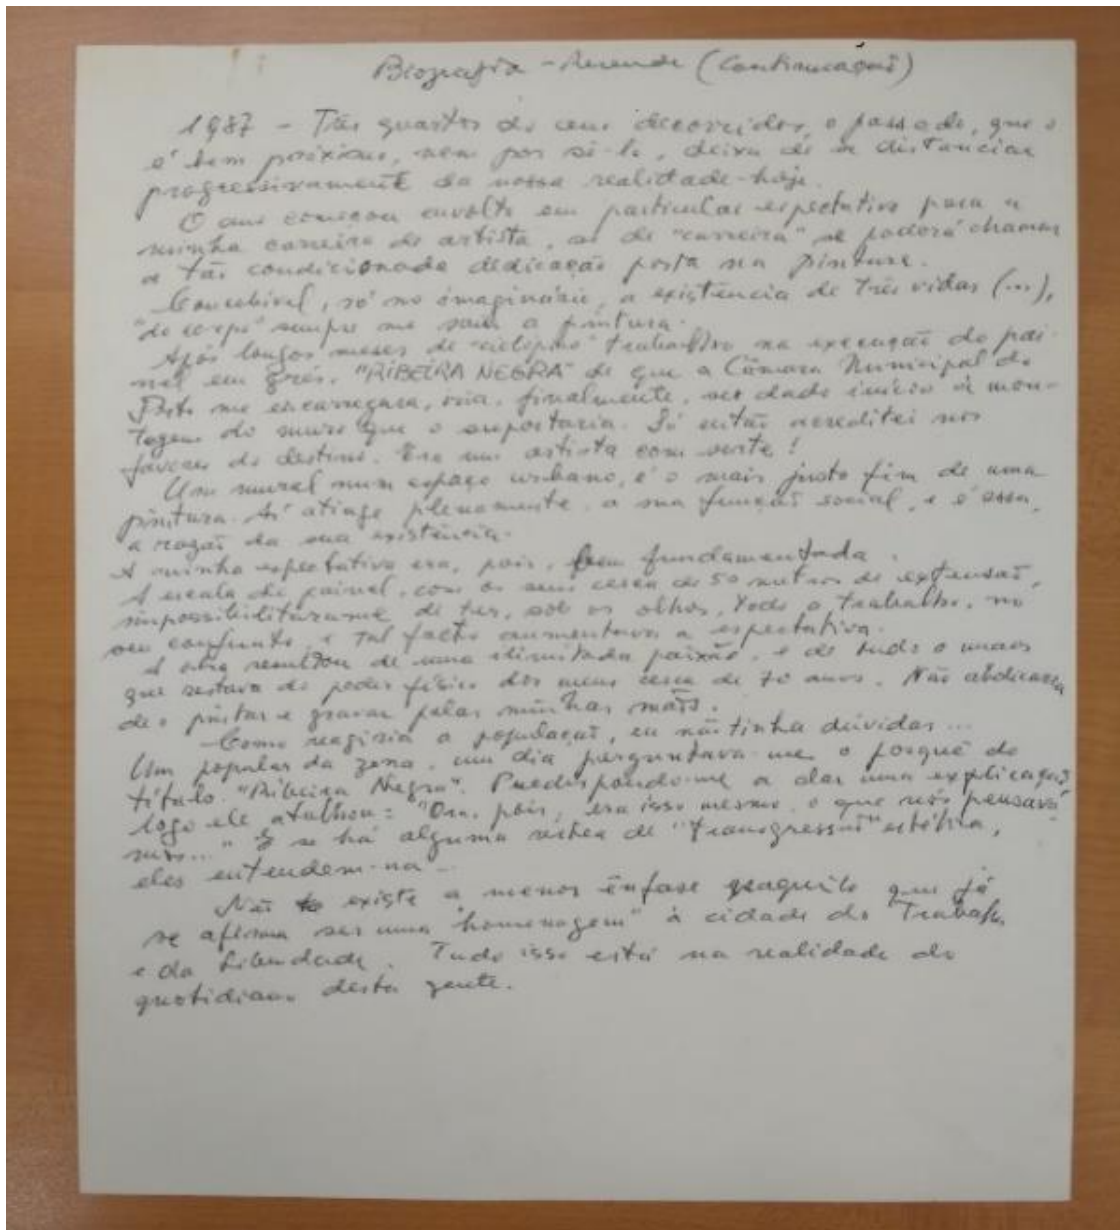 Biografia - Resende (Continuação)
1987 - Três quartos do ano decorridos, o passado, que
é bem próximo, nem por sê-lo, deixa de se distanciar
progressivamente da nossa realidade-hoje.
O ano começou envolto em particular espectativa para a
minha carreira de artista, se de "carreira" se poderá chamar
a tão condicionada dedicação posta na pintura.
Concebível, só no imaginário, a existência de três vidas (...),
sempre me a pintura.
Após longos meses de "ciclópico" trabalho na execução do pai-
nel em grés. "RIBEIRA NEGRA" de que a Câmara Municipal do
Porto me encarregara, via, finalmente, ser dado início à mon-
tagem do muro que o suportaria. Só então acreditei nos
favores do destino. Era um artista com sorte!
Um mural num espaço urbano, é o mais justo fim de uma
pintura. Aí atinge plenamente a sua função social, e é essa,
a razão da sua existência.
A minha espectativa era, pois, bem fundamentada.
A escala do painel, com os seus cerca de 50 metros de extensão,
impossibilitara-me de ter, sob os olhos, todo o trabalho, no
seu conjunto, e tal facto aumentava a espectativa.
A obra resultou de uma ilimitada paixão, e de tudo o mais
que restava do poder físico dos meus cerca de 70 anos. Não abdicara
de pintar e gravar pelas minhas mãos.
Como reagiria a população, eu não tinha dúvidas...
Um popular da zona, um dia perguntava-me o porquê do
título "Ribeira Negra". Predispondo-me a dar uma explicação
logo ele atalhou: "Ora, pois, era isso mesmo, o que nós pensáva-
mos..." E se há alguma réstea de "transgressão" estética,
eles entendem-na...
Não existe a menor ênfase naquilo que já
se afirma ser uma "homenagem" à cidade do Trabalho
e da Liberdade. Tudo isso está na realidade do
quotidiano desta gente.